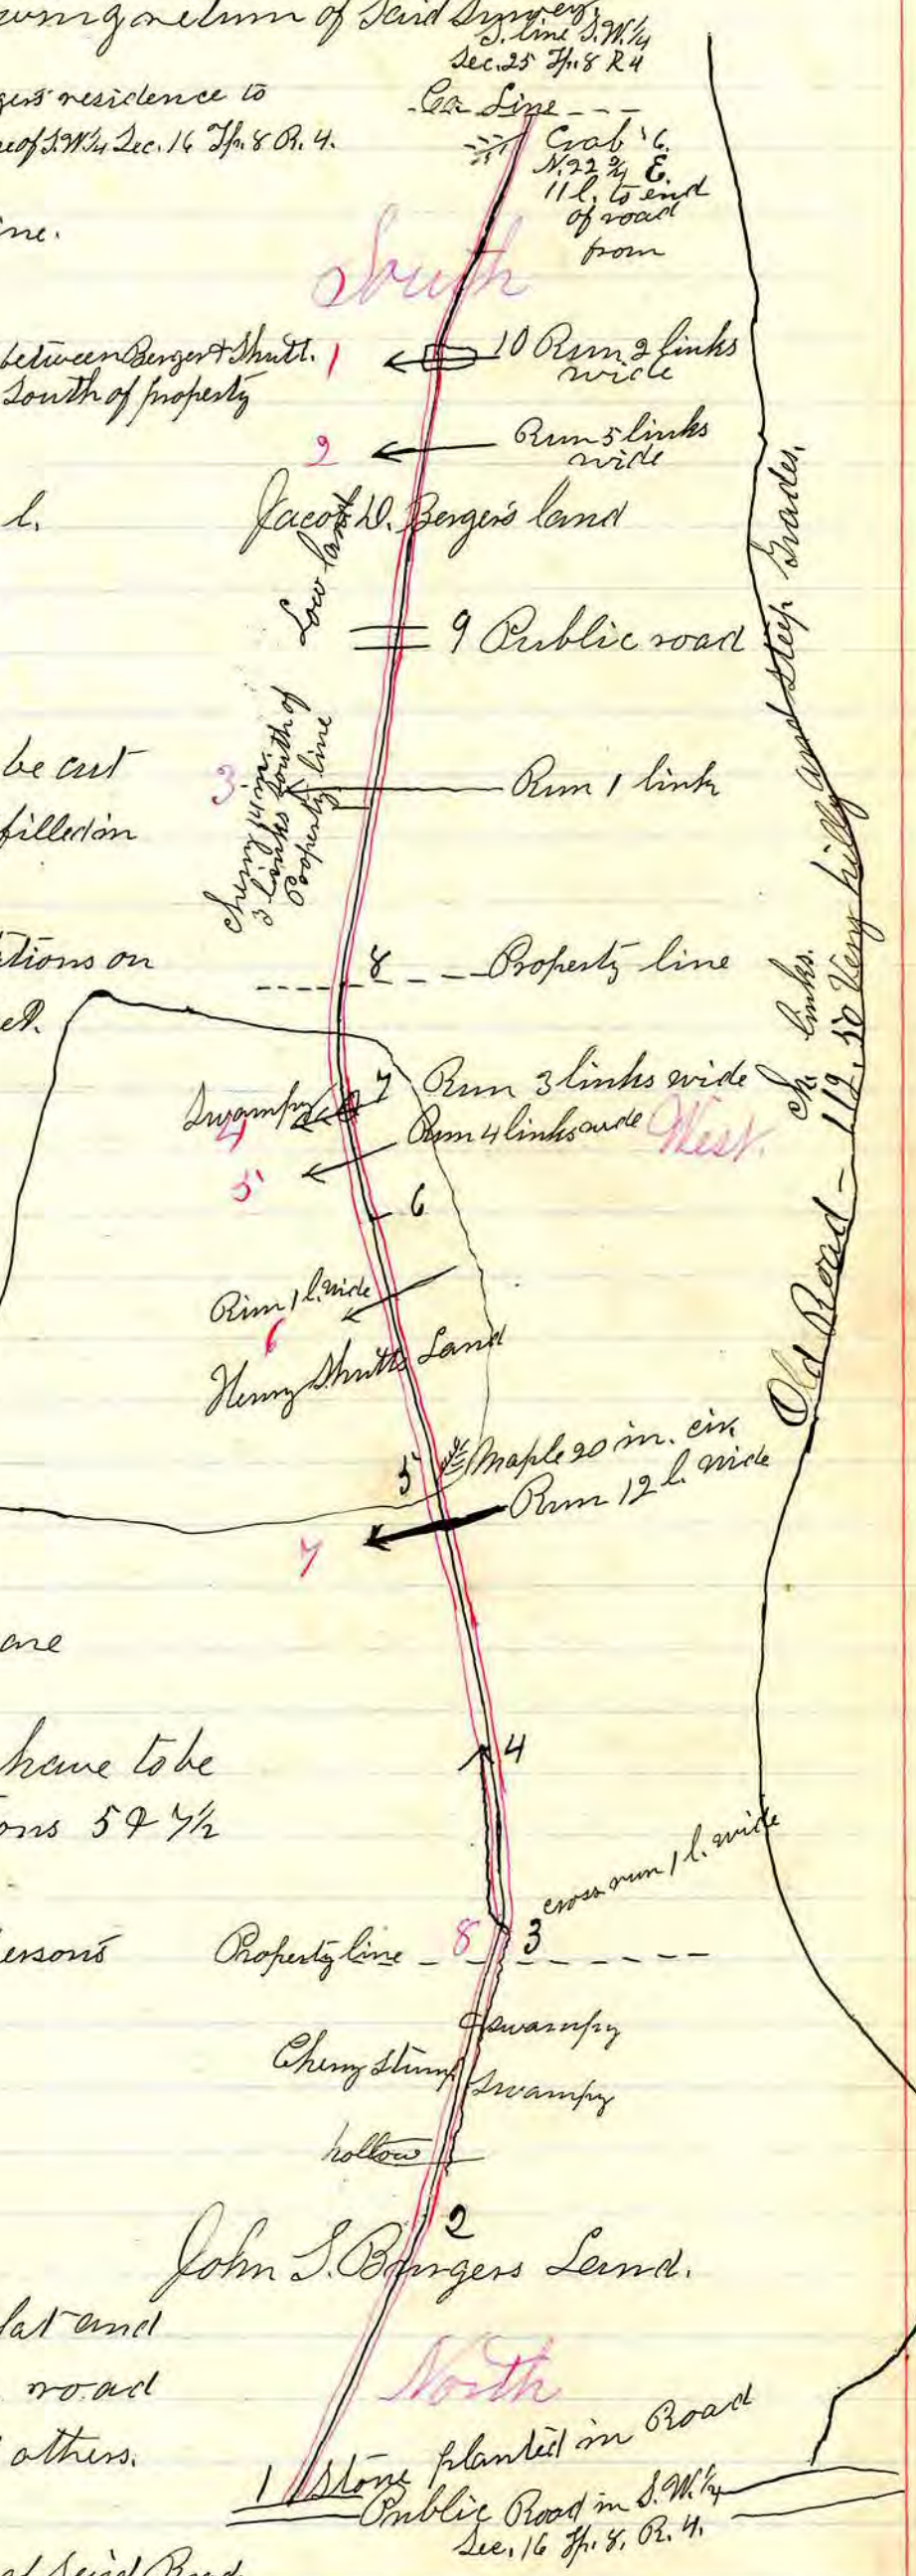 return of Said Survey.
S. line S.W. 1/4
Sec. 25 Tp. 8 R 4
residence to
of S.W 1/4 Sec. 16 Tp. 8 R. 4.
Co. Line
Crab 6.
N. 22 3/4 E.
11 l. to end
of road
from
South
between Berger & Shutt.
South of property
1
10 Run 2 links
wide
2
Run 5 links
wide
l.
Jacob D. Bergers land
Low land
9 Public road
be cut
filled in
3
Run 1 link
3 links South of
Property line
8
Property line
tions on
7
Run 3 links wide
Swampy
4
Run 4 links wide
West.
5
6
Run 1 l. wide
6
Henry Shutts Land
Ch. links.
Old Road - 119.50 Very hilly and steep Grades.
5
Maple 20 in. cir.
Run 12 l. wide
7
are
4
have to be
ons 5 & 7 1/2
cross run 1 l. wide
ersons
Property line
8
3
Swampy
Cherry Stump
Swampy
hollow
2
John S. Bergers Land.
lat and
road
others.
North
1
Stone planted in Road
Public Road in S.W. 1/4
Sec. 16 Tp. 8. R. 4.
of Said Road